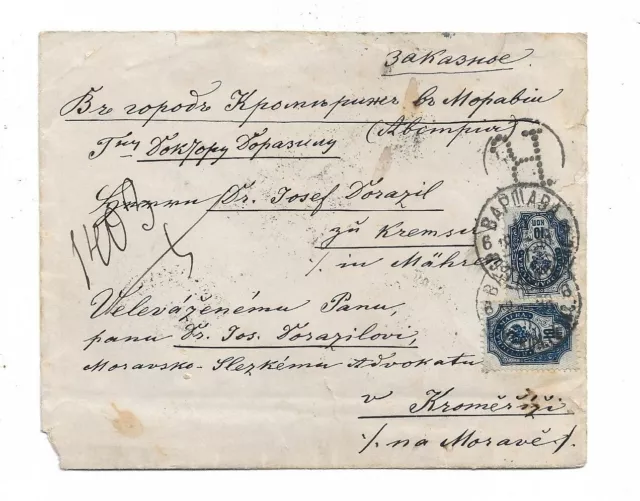 Заказное
Въ городъ Кромѣрижъ въ Моравіи
(Австрія)
Гну Доктору Доразилу
Herrn Dr. Josef Dorazil
zu Kremsier
1/. in Mähren
Veleváženému Panu,
panu Dr. Jos. Dorazilovi,
Moravsko-Slezkému Advokatu
v Kroměříži
1/. na Moravě 1.
ВАРШАВА
6
10
КОП